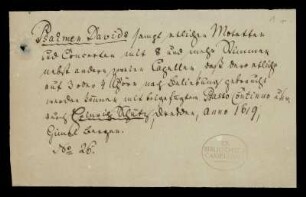 Psalmen Davids sampt etlichen Motetten
und Concerten mit 8 und mehr Stimmen
nebst andern zweien Capellen, daß dero etliche
auf 3 oder 4 Chöre nach Beliebung gebraucht
werden können mit beigefügten Basso Continuo
durch Heinrich Schütz, Dresden, anno 1619,
Gimel Bergen.
No 26.